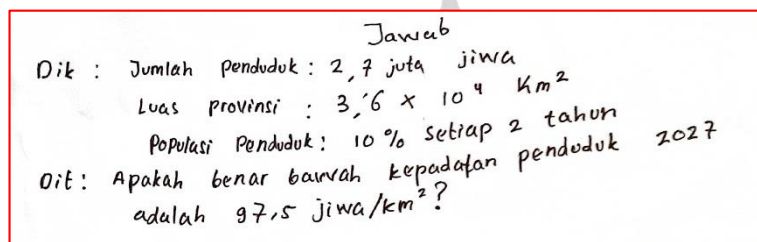 Jawab
Dik : Jumlah penduduk : 2,7 juta jiwa
Luas provinsi : 3,6 × 10⁴ Km²
Populasi Penduduk : 10 % setiap 2 tahun
Dit : Apakah benar bawah kepadatan penduduk 2027
adalah 97,5 jiwa/km² ?